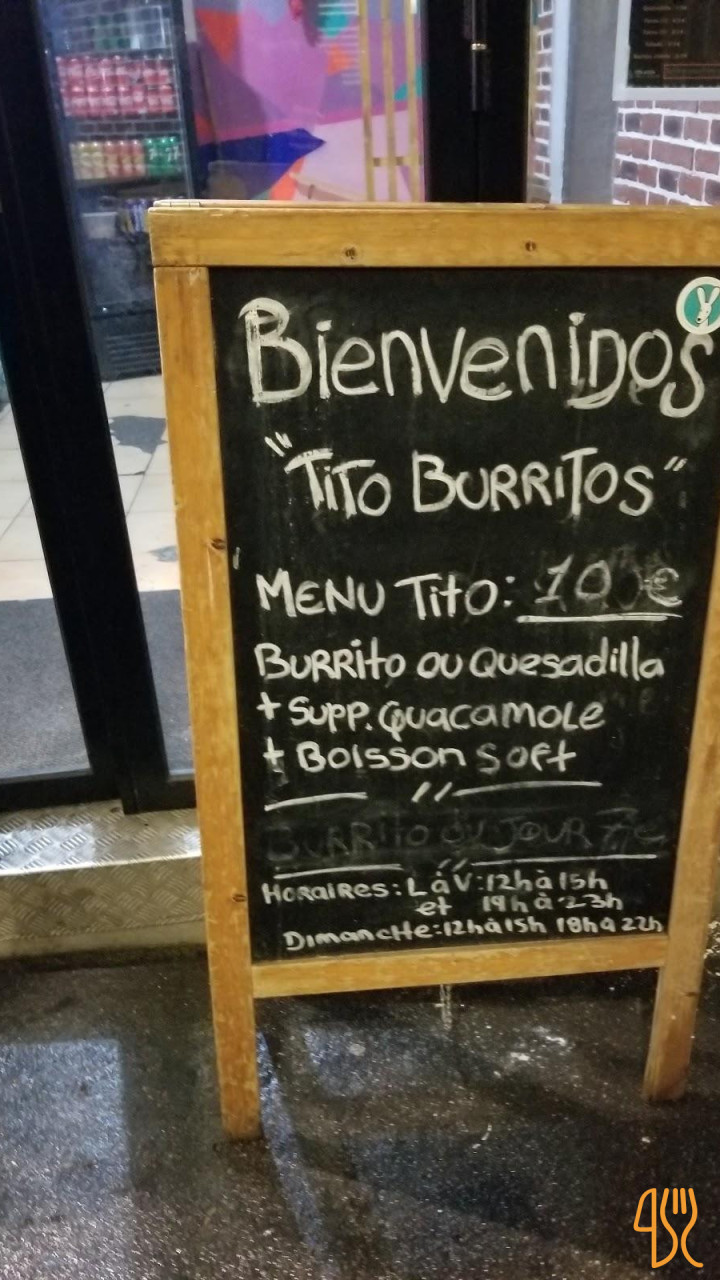 Bienvenidos
"Tito Burritos"
Menu Tito: 10€
Burrito ou Quesadilla
+ Supp. Guacamole
+ Boisson Soft
//
Burrito du Jour 7€
//
Horaires: L à V: 12h à 15h
et 19h à 23h
Dimanche: 12h à 15h 18h à 22h